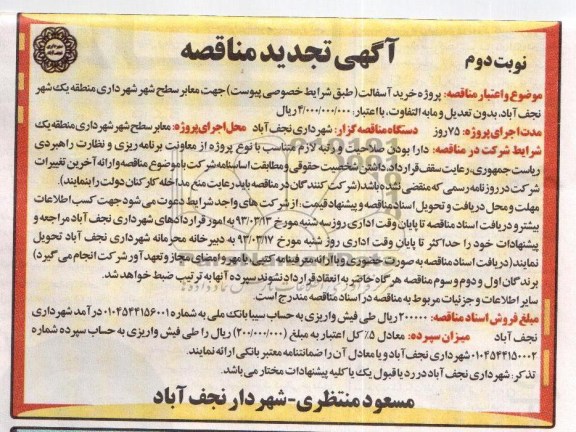 آگهی تجدید مناقصه
نوبت دوم
موضوع و اعتبار مناقصه: پروژه خرید آسفالت (طبق شرایط خصوصی پیوست) جهت معابر سطح شهر شهرداری منطقه یک شهر
نجف آباد، بدون تعدیل و مابه التفاوت، با اعتبار: ۴/۰۰۰/۰۰۰/۰۰۰ ریال
مدت اجرای پروژه: ۷۵ روز دستگاه مناقصه گزار: شهرداری نجف آباد محل اجرای پروژه: معابر سطح شهر شهرداری منطقه یک
شرایط شرکت در مناقصه: دارا بودن صلاحیت و رتبه لازم متناسب با نوع پروژه از معاونت برنامه ریزی و نظارت راهبردی
ریاست جمهوری، رعایت سقف قرارداد، داشتن شخصیت حقوقی و مطابقت اساسنامه شرکت با موضوع مناقصه و ارائه آخرین تغییرات
شرکت در روزنامه رسمی که منقضی نشده باشد (شرکت کنندگان در مناقصه باید رعایت منع مداخله کارکنان دولت را بنمایند).
مهلت و محل دریافت و تحویل اسناد مناقصه و پیشنهاد قیمت: از شرکت های واجد شرایط دعوت می شود جهت کسب اطلاعات
بیشتر و دریافت اسناد مناقصه تا پایان وقت اداری روز سه شنبه مورخ ۹۳/۰۳/۱۳ به امور قراردادهای شهرداری نجف آباد مراجعه و
پیشنهادات خود را حداکثر تا پایان وقت اداری روز شنبه مورخ ۹۳/۰۳/۱۷ به دبیرخانه محرمانه شهرداری نجف آباد تحویل
نمایند (دریافت اسناد مناقصه به صورت حضوری و با ارائه معرفینامه کتبی با مهر و امضای مجاز و تعهدآور شرکت انجام می گیرد)
برندگان اول و دوم و سوم مناقصه هرگاه حاضر به انعقاد قرارداد نشوند سپرده آنها به ترتیب ضبط خواهد شد.
سایر اطلاعات و جزئیات مربوط به مناقصه در اسناد مناقصه مندرج است.
مبلغ فروش اسناد مناقصه: ۲۰۰۰۰۰ ریال طی فیش واریزی به حساب سیبا بانک ملی به شماره ۰۱۰۴۵۴۴۱۵۶۰۰۱ درآمد شهرداری
نجف آباد میزان سپرده: معادل ۵٪ کل اعتبار به مبلغ (۲۰۰/۰۰۰/۰۰۰) ریال را طی فیش واریزی به حساب سپرده شماره
۰۱۰۴۵۴۴۱۵۰۰۰۲ شهرداری نجف آباد و یا معادل آن را ضمانتنامه معتبر بانکی ارائه نمایند.
تذکر: شهرداری نجف آباد در رد یا قبول یک یا کلیه پیشنهادات مختار می باشد.
مسعود منتظری - شهردار نجف آباد